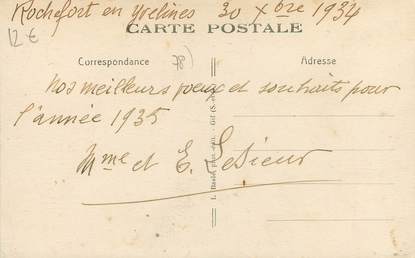 Rochefort en Yvelines 30 Xbre 1934
12 €
CARTE POSTALE
Correspondance
78)
Adresse
Nos meilleurs voeux et souhaits pour
l'année 1935
Mme et E. Lesieur